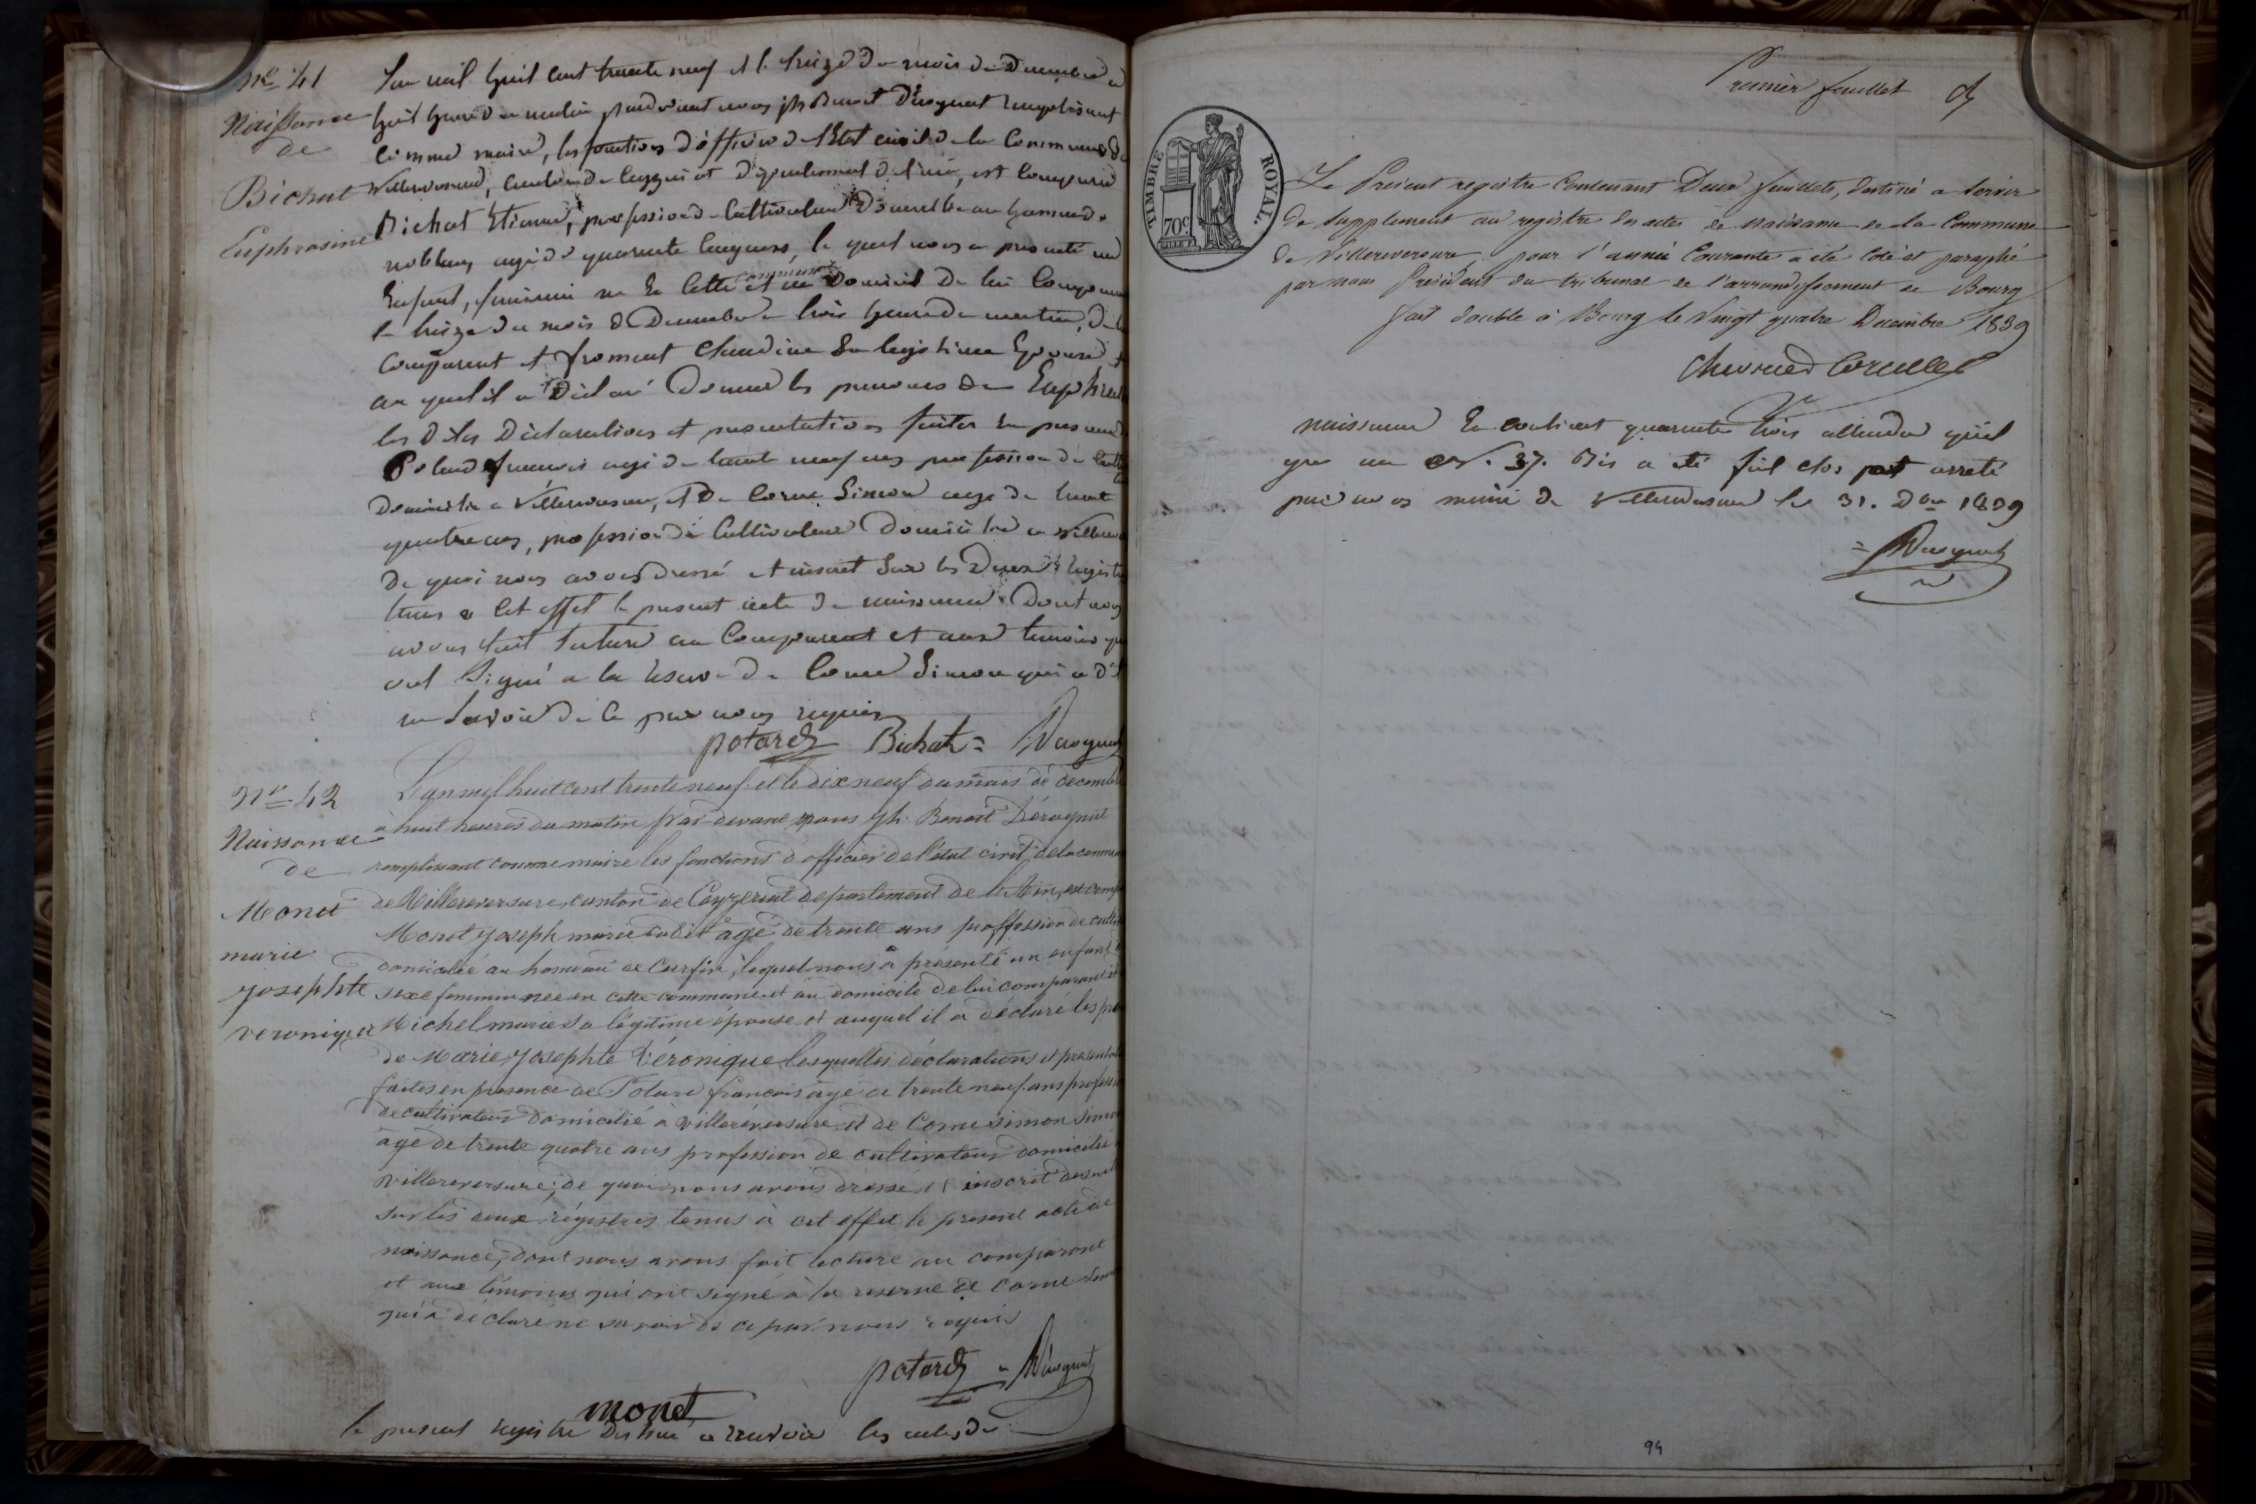 No 41
Naissance
de
Bichat
Euphrosine
L'an mil huit cent trente neuf et le treize du mois de Decembre a
huit heures du matin pardevant nous jh Benoit Déroguat remplissant
comme maire, les fonctions d'officier de l'Etat civil de la Commune de
Villereversure, canton de Ceyzeriat département de l'ain, est comparu
Bichat Etienne, profession de Cultivateur Domicilié au hameau de
noblens agé de quarante cinq ans, le quel nous a presenté un
Enfant, feminin né En Cette commune et au Domicile de lui Comparant
le treize du mois de Decembre a trois heures du matin, de lui
Comparant et froment Claudine Sa legitime Epouse et
au quel il a Déclaré Donner les prenoms de Euphrosine
les dites Déclarations et presentations faites En presence
Potard francois agé de trente neuf ans profession de Cult
Domicilié a Villereversure, et De Corne Simon agé de trente
quatre ans, profession de Cultivateur Domicilié a Villerev
De quoi nous avons dressé et inscrit Sur les Deux registres
tenus a Cet effet le present acte de naissance Dont nous
avons fait lecture au Comparant et aux temoins qui
ont Signé a la reserve de Corne Simon qui a d
ne Savoir de ce par nous requis
potard Bichat Deroguat
No 42
Naissance
de
Monet
marie
josephte
veronique
L'an mil huit cent trente neuf et le dix neuf du mois de decembre
à huit heures du matin par devant nous jh. Benoit Déroguat
remplissant comme maire les fonctions d'officier de l'état civil de la commune
de Villereversure, canton de Ceyzeriat departement de l'Ain, est comp
Monet joseph marie cadet âgé de trente ans proffession de cultiv
domicilié au hameau de Curfin, lequel nous a présenté un enfant
sexe feminin née en cette commune et au domicile de lui comparant et
Michel marie Sa légitime épouse et auquel il a déclaré les pré
de Marie, Josephte Véronique lesquelles déclarations et présentat
faites en presence de Potard francois âgé de trente neuf ans profess
de cultivateur domicilié à villereversure et de Corne simon simon
âgé de trente quatre ans profession de cultivateur domicilié
villereversure; de quoi nous avons dressé et inscrit
sur les deux régistres tenus à cet effet le present acte de
naissance, dont nous avons fait lecture au comparant
et aux témoins qui ont signé à la reserve de Corne
qui a déclaré ne savoir de ce par nous requis
potard Deroguat
monet
le present registre Destiné a recevoir les actes de
Premier feuillet
TIMBRE ROYAL.
70c
Le Présent registre Contenant Deux feuillets, destiné a servir
de Supplement au registre des actes de naissance de la Commune
de Villereversure, pour l'année Courante a été coté et paraphé
par nous President du tribunal de l'arrondissement de Bourg
fait double à Bourg le Vingt quatre Decembre 1839
naissance En contient quarante trois attendu qu'il
y a un No. 37. Bis a été fait clos et arreté
par nous maire de Villereversure le 31. Dbre 1839
Deroguat
94